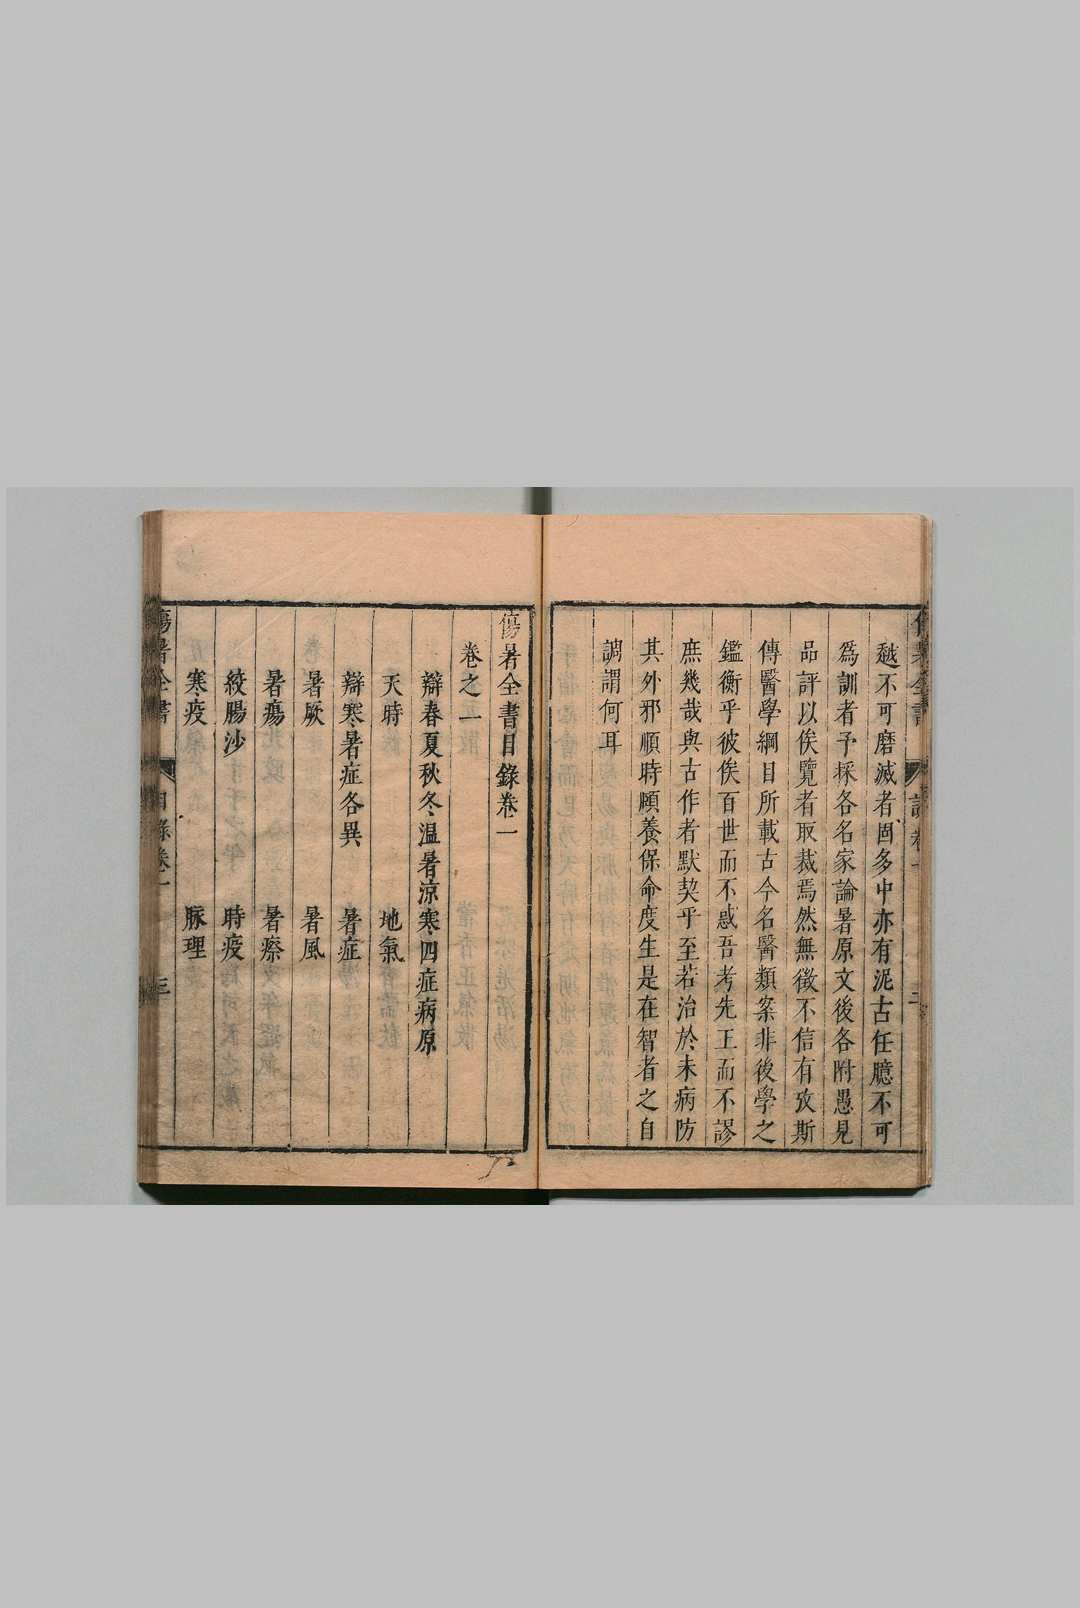 越不可磨滅者固多中亦有泥古任臆不可
爲訓者予採各名家論暑原文後各附愚見
品評以俟覽者取裁焉然無徵不信有攷斯
傳醫學綱目所載古今名醫類案非後學之
鑑衡乎彼俟百世而不惑吾考先王而不謬
庶幾哉與古作者默契乎至若治於未病防
其外邪順時頤養保命度生是在智者之自
調謂何耳
傷暑全書目錄卷一
卷之一
辯春夏秋冬温暑涼寒四症病原
天時 地氣
辯寒暑症各異 暑症
暑厥 暑風
暑瘍 暑瘵
絞腸沙 時疫
寒疫 脉理
傷暑全書 目錄卷一 三